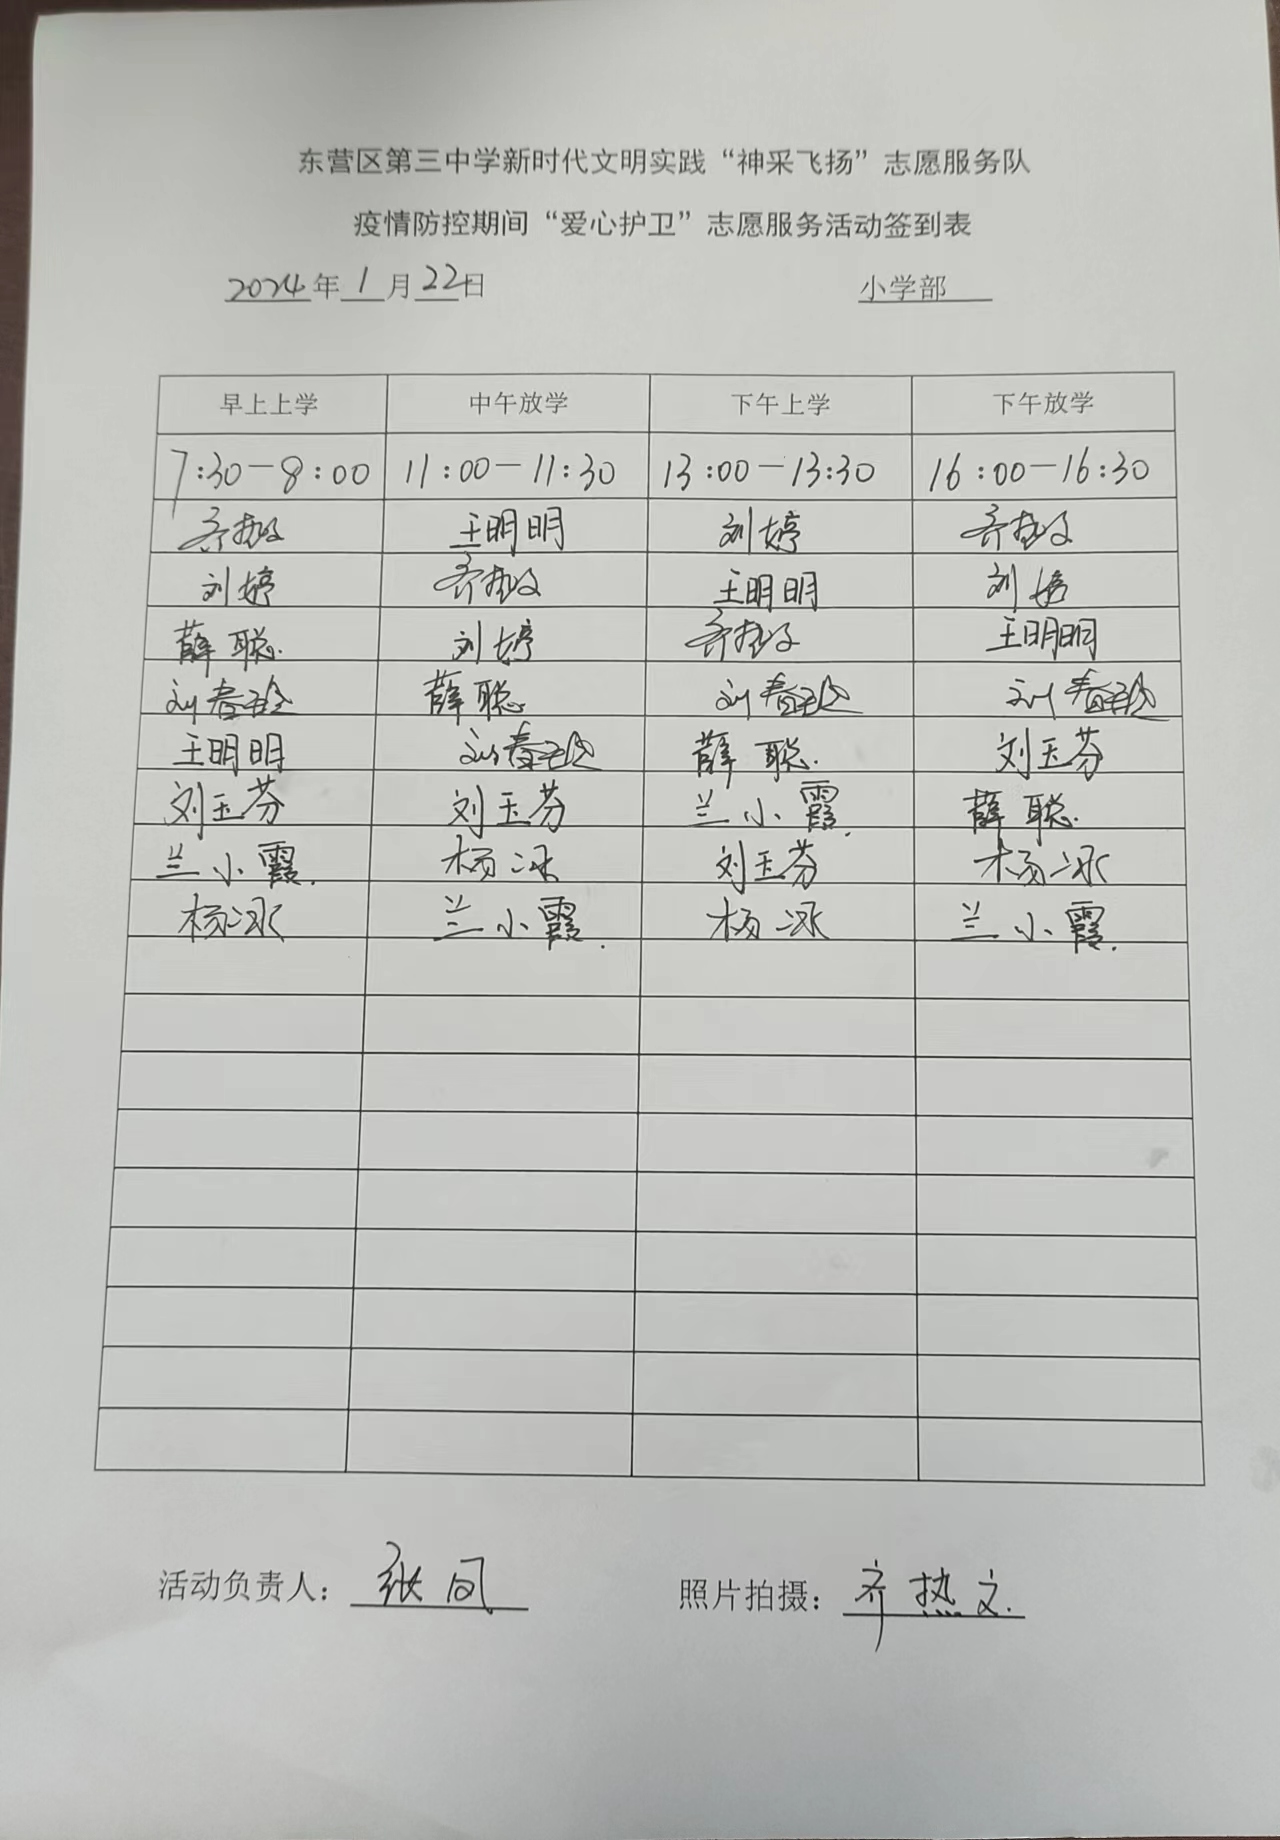 东营区第三中学新时代文明实践“神采飞扬”志愿服务队
疫情防控期间“爱心护卫”志愿服务活动签到表
2024年1月22日 小学部
早上上学 中午放学 下午上学 下午放学
7:30-8:00 11:00-11:30 13:00-13:30 16:00-16:30
齐热文 王明明 刘婷 齐热文
刘婷 齐热文 王明明 刘婷
薛聪 刘婷 齐热文 王明明
刘春玲 薛聪 刘春玲 刘春玲
王明明 刘春玲 薛聪 刘玉芬
刘玉芬 刘玉芬 兰小霞 薛聪
兰小霞 杨冰 刘玉芬 杨冰
杨冰 兰小霞 杨冰 兰小霞
活动负责人：张 照片拍摄：齐热文